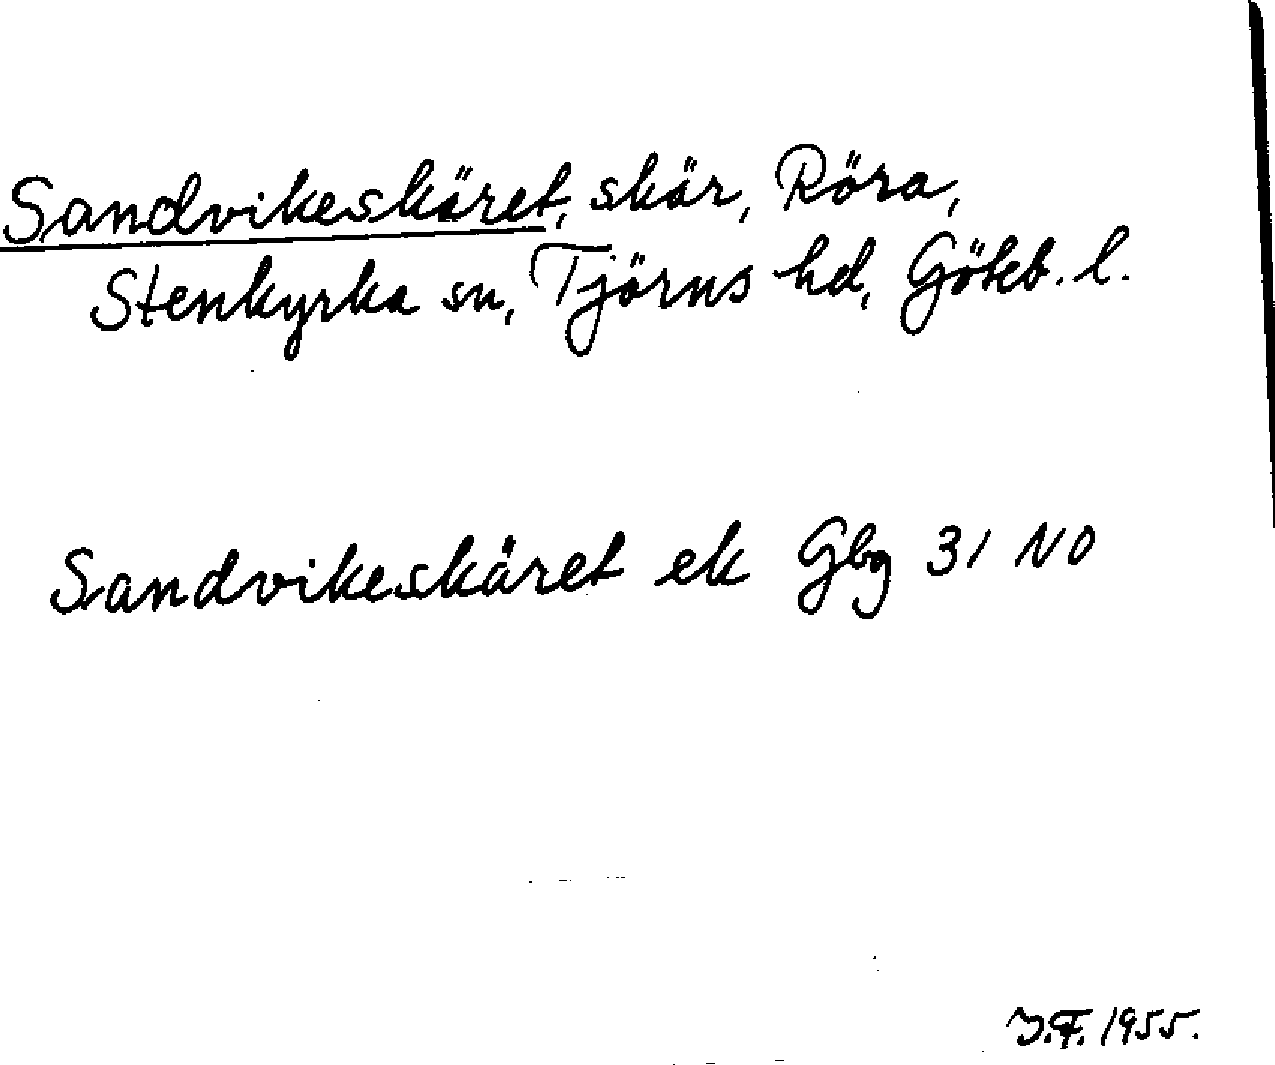 Sandvikeskäret, skär, Röra,
Stenkyrka sn, Tjörns hd, Göteb. l.
Sandvikeskäret ek Gbg 31 NO
I.F. 1955.